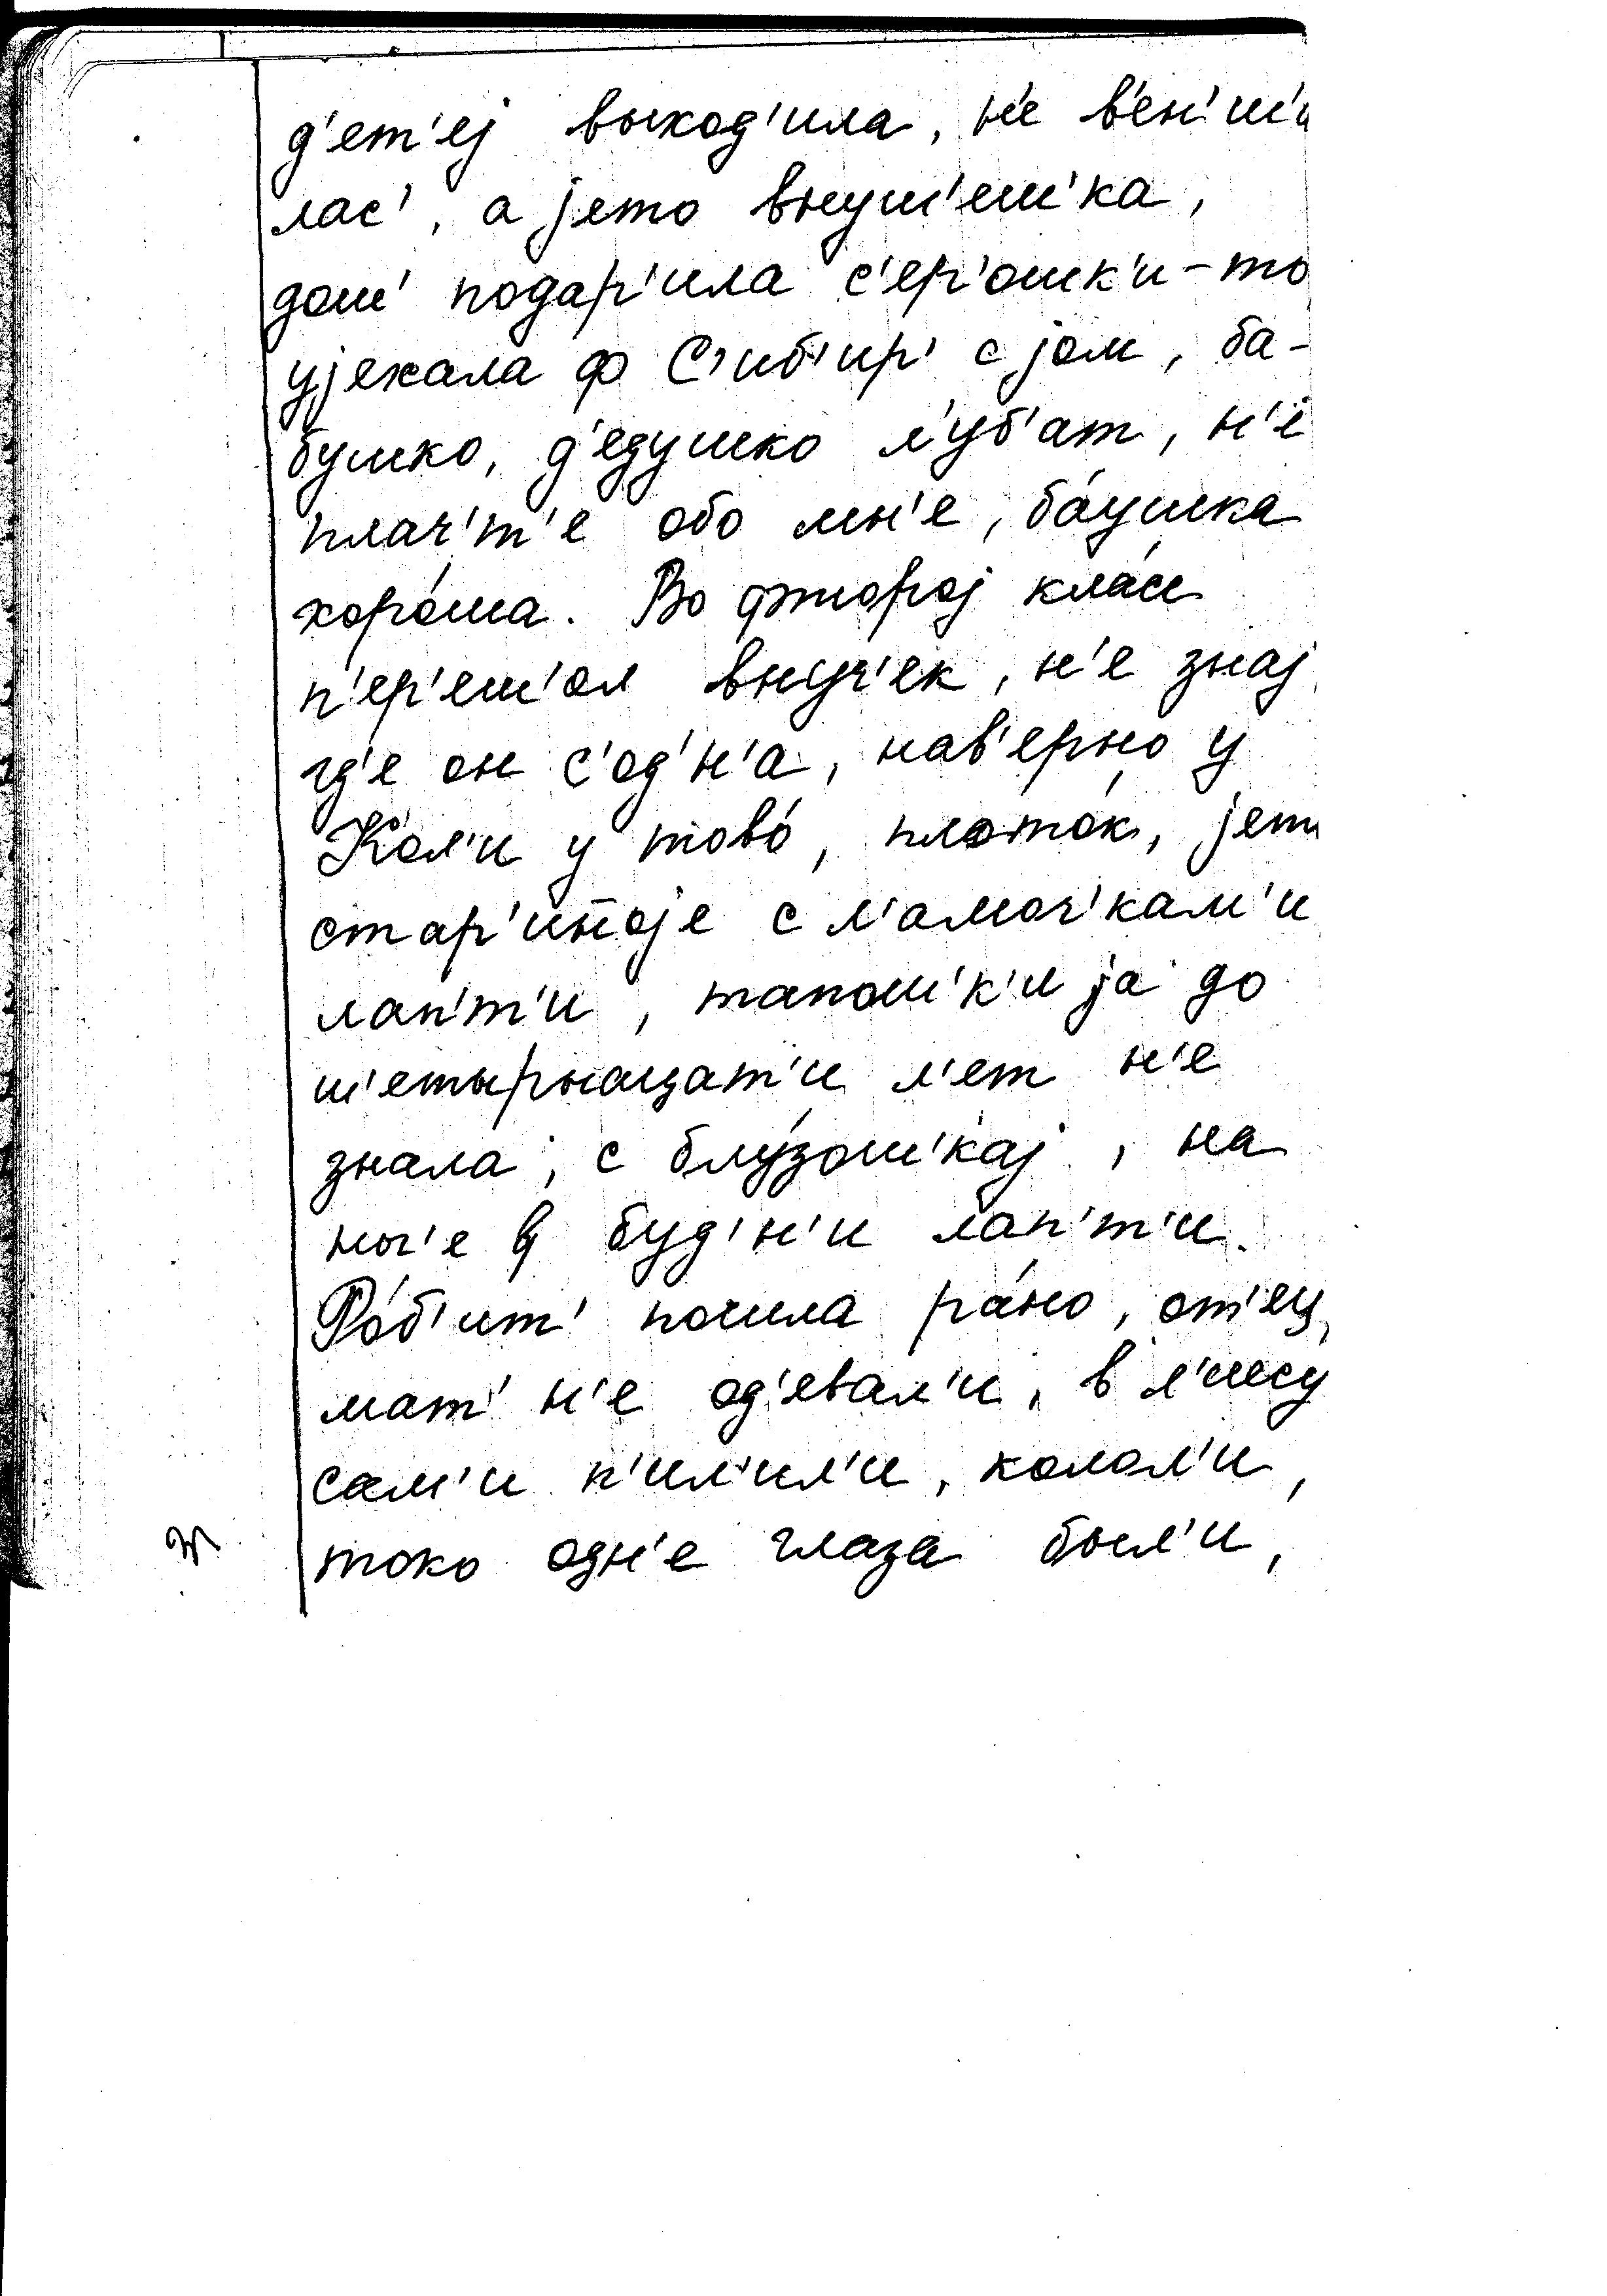 д'ет'еj выход'ила, н'е в'ен'ш'а
лас', а jето внуш'еш'ка,
дош' подар'ила с'ер'ошк'и-то
уjехала ф С'иб'ир' с jом, ба-
бушко, д'едушко л'уб'ат, н'е
плач'т'е обо мн'е, ба́ушка
хоро́ша. Во фторој кла́се
п'ер'еш'ол внуч'ек, н'е знај
гд'е он с'од'н'а, нав'ерно у
Кол'и у тово́, плато́к, jети
стар'ин̄оjе с л'амоч'кам'и
лап'т'и, тапош'к'и jа до
ш'етырнаццат'и л'ет н'е
знала, с блу́зош'кај, на
ног'е в буд'н'и лап'т'и.
Ро́б'ит' почила ра́но, от'ец,
мат' н'е од'евал'и, в л'иесу
сам'и п'ил'ил'и, колол'и,
токо одн'е глаза был'и,